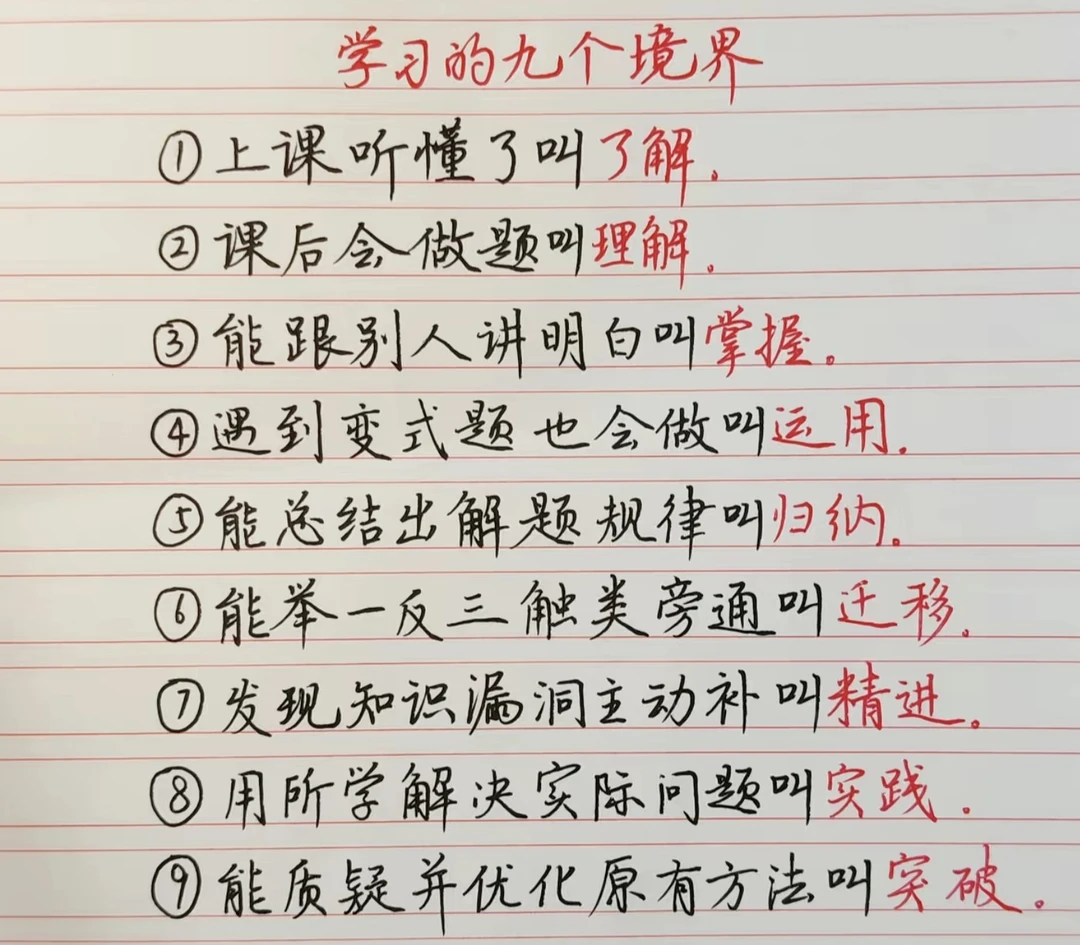 学习的九个境界
①上课听懂了叫了解.
②课后会做题叫理解.
③能跟别人讲明白叫掌握.
④遇到变式题也会做叫运用.
⑤能总结出解题规律叫归纳.
⑥能举一反三触类旁通叫迁移.
⑦发现知识漏洞主动补叫精进.
⑧用所学解决实际问题叫实践.
⑨能质疑并优化原有方法叫突破.